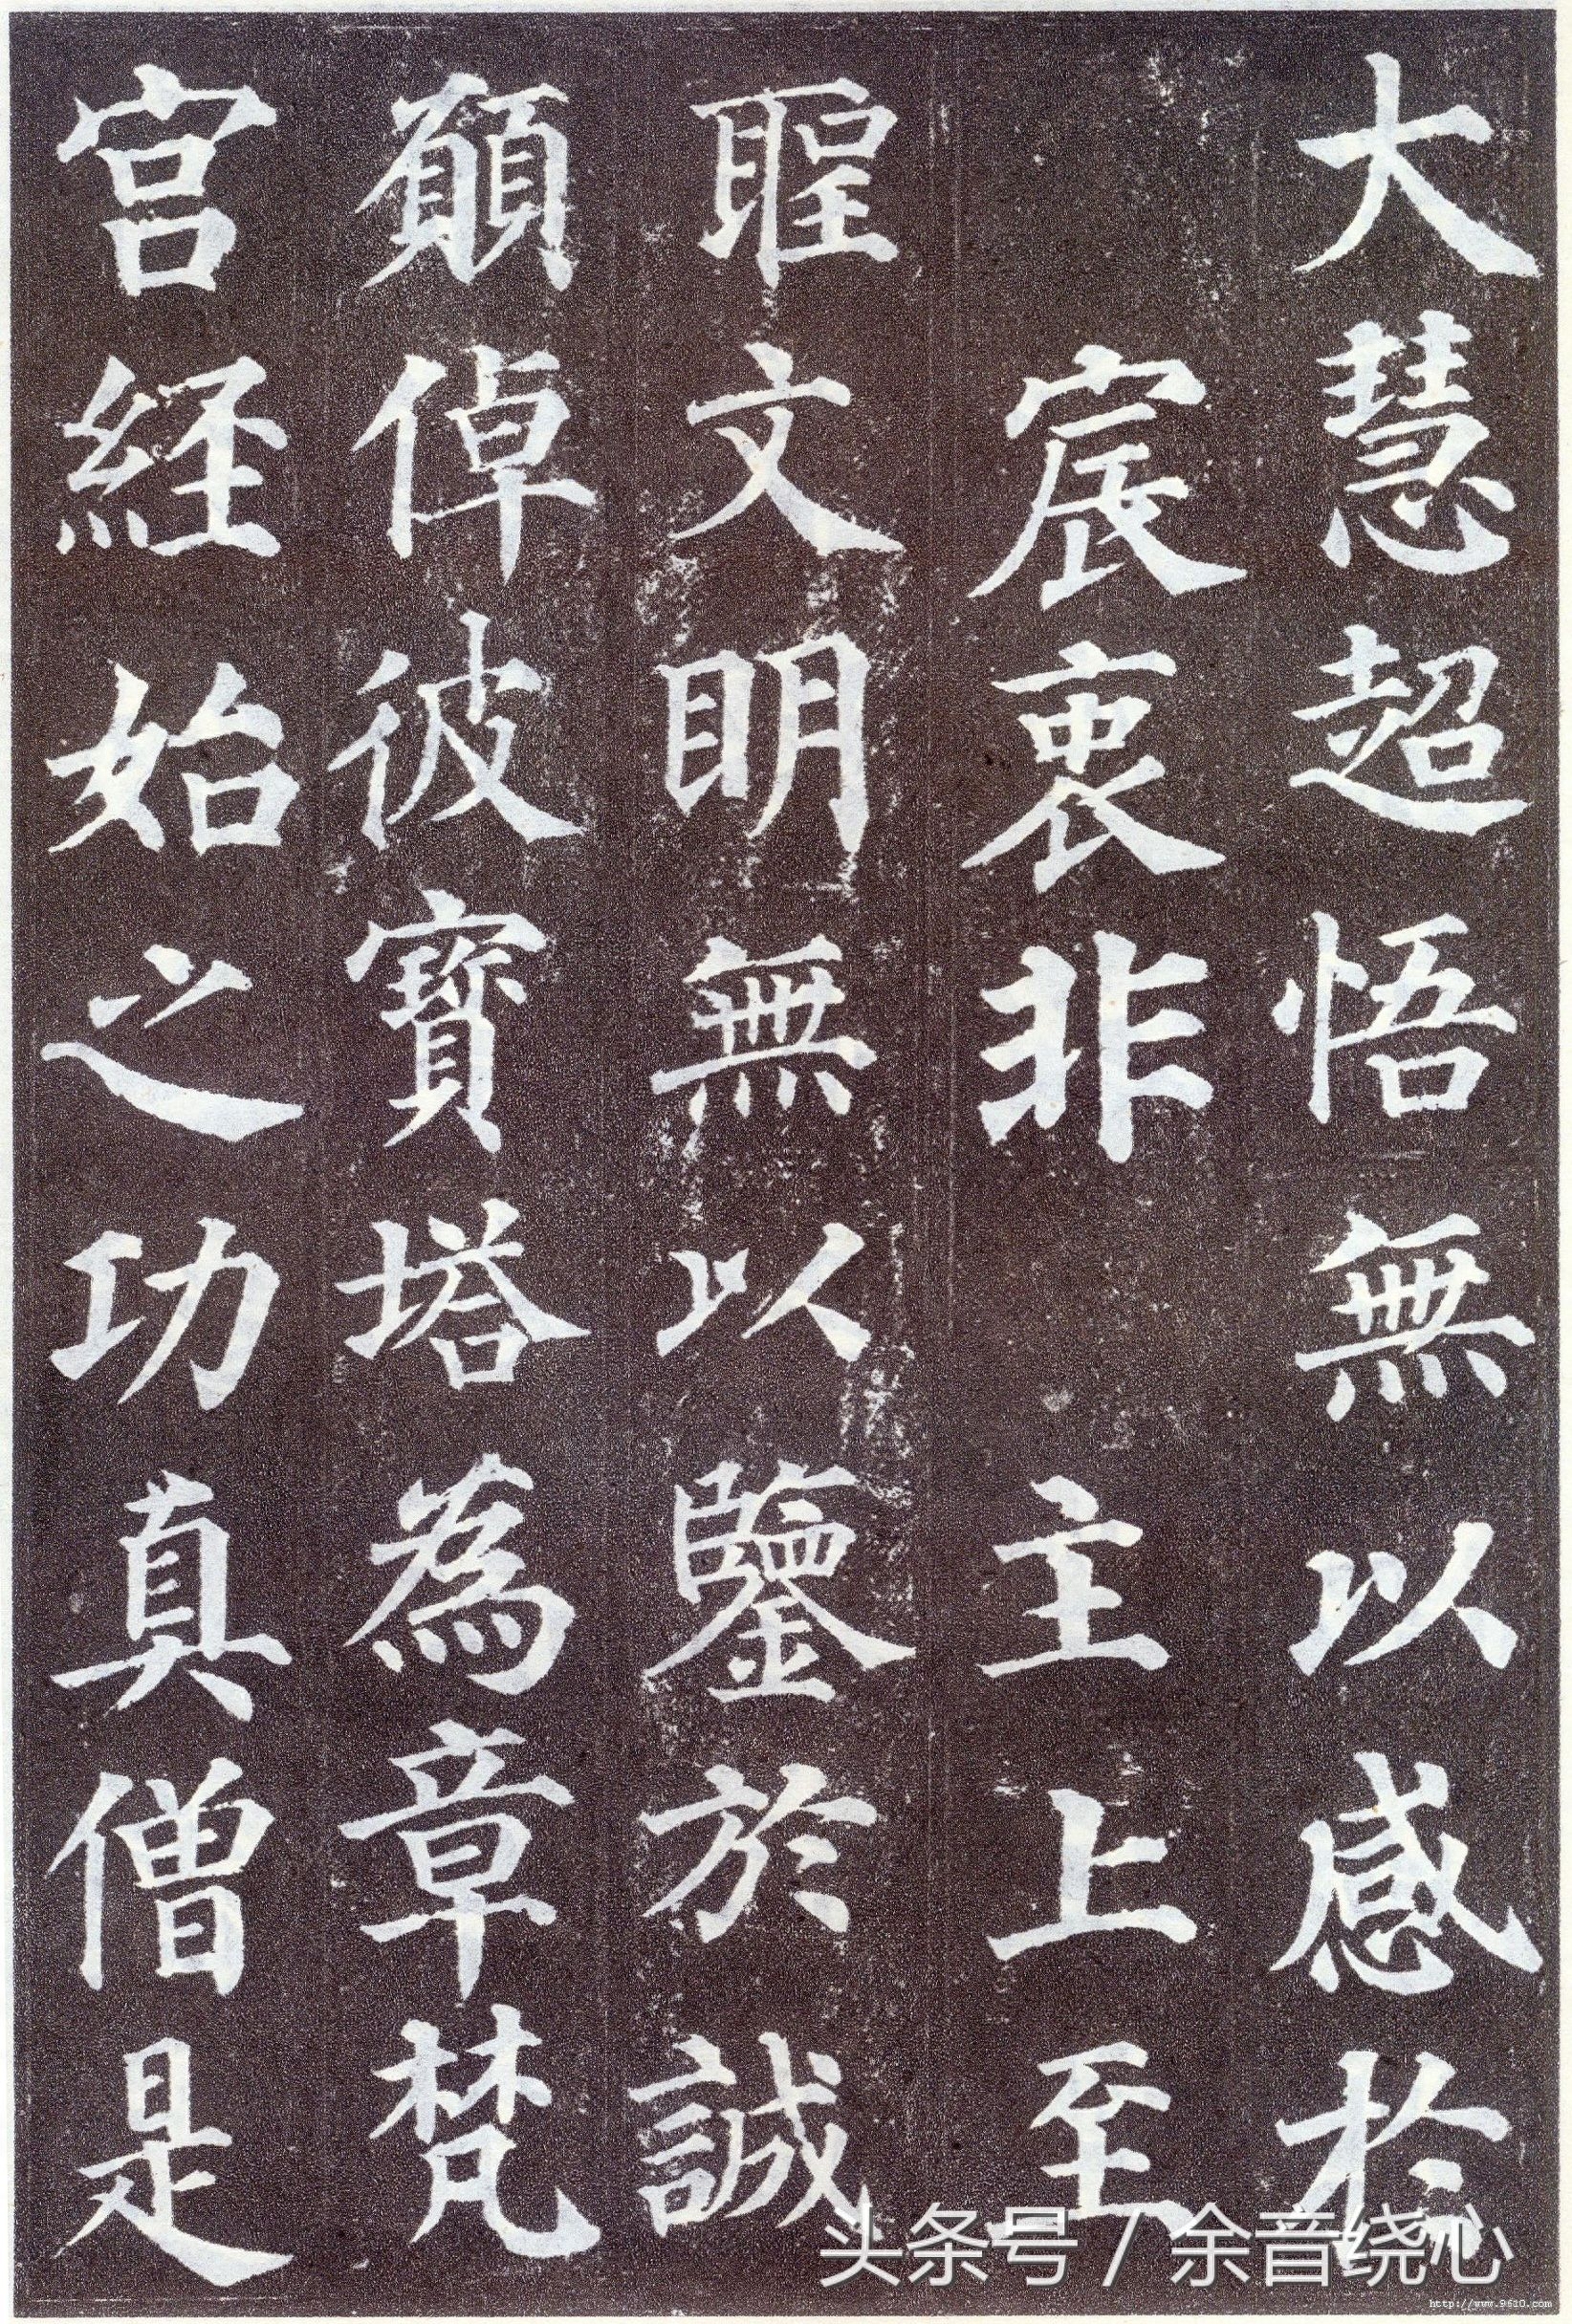 大慧超悟無以感於
宸衷非　主上至
聖文明無以鑒於誠
願倬彼寶塔為章梵
宫經始之功真僧是
头条号 / 余音绕心
http://www.9610.com